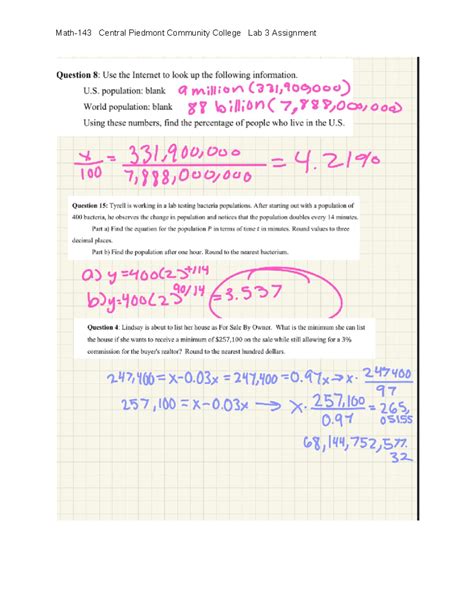 Math-143 Central Piedmont Community College Lab 3 Assignment
Question 8: Use the Internet to look up the following information.
U.S. population: blank 9 million (331,900,000)
World population: blank 88 billion (7,888,000,000)
Using these numbers, find the percentage of people who live in the U.S.
x/100 = 331,900,000/7,888,000,000 = 4.21%
Question 15: Tyrell is working in a lab testing bacteria populations. After starting out with a population of
400 bacteria, he observes the change in population and notices that the population doubles every 14 minutes.
Part a) Find the equation for the population P in terms of time t in minutes. Round values to three
decimal places.
Part b) Find the population after one hour. Round to the nearest bacterium.
a) y=400(2)^t/14
b) y=400(2)^90/14 = 3.537
Question 4: Lindsay is about to list her house as For Sale By Owner. What is the minimum she can list
the house if she wants to receive a minimum of $257,100 on the sale while still allowing for a 3%
commission for the buyer's realtor? Round to the nearest hundred dollars.
247,400 = x-0.03x = 247,400 = 0.97x → x · 247400/97
257,100 = x-0.03x → x · 257,100/0.97 = 265,
05155
68,144,752,577.
32